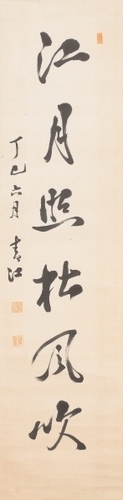 江月照松風吹
丁巳六月